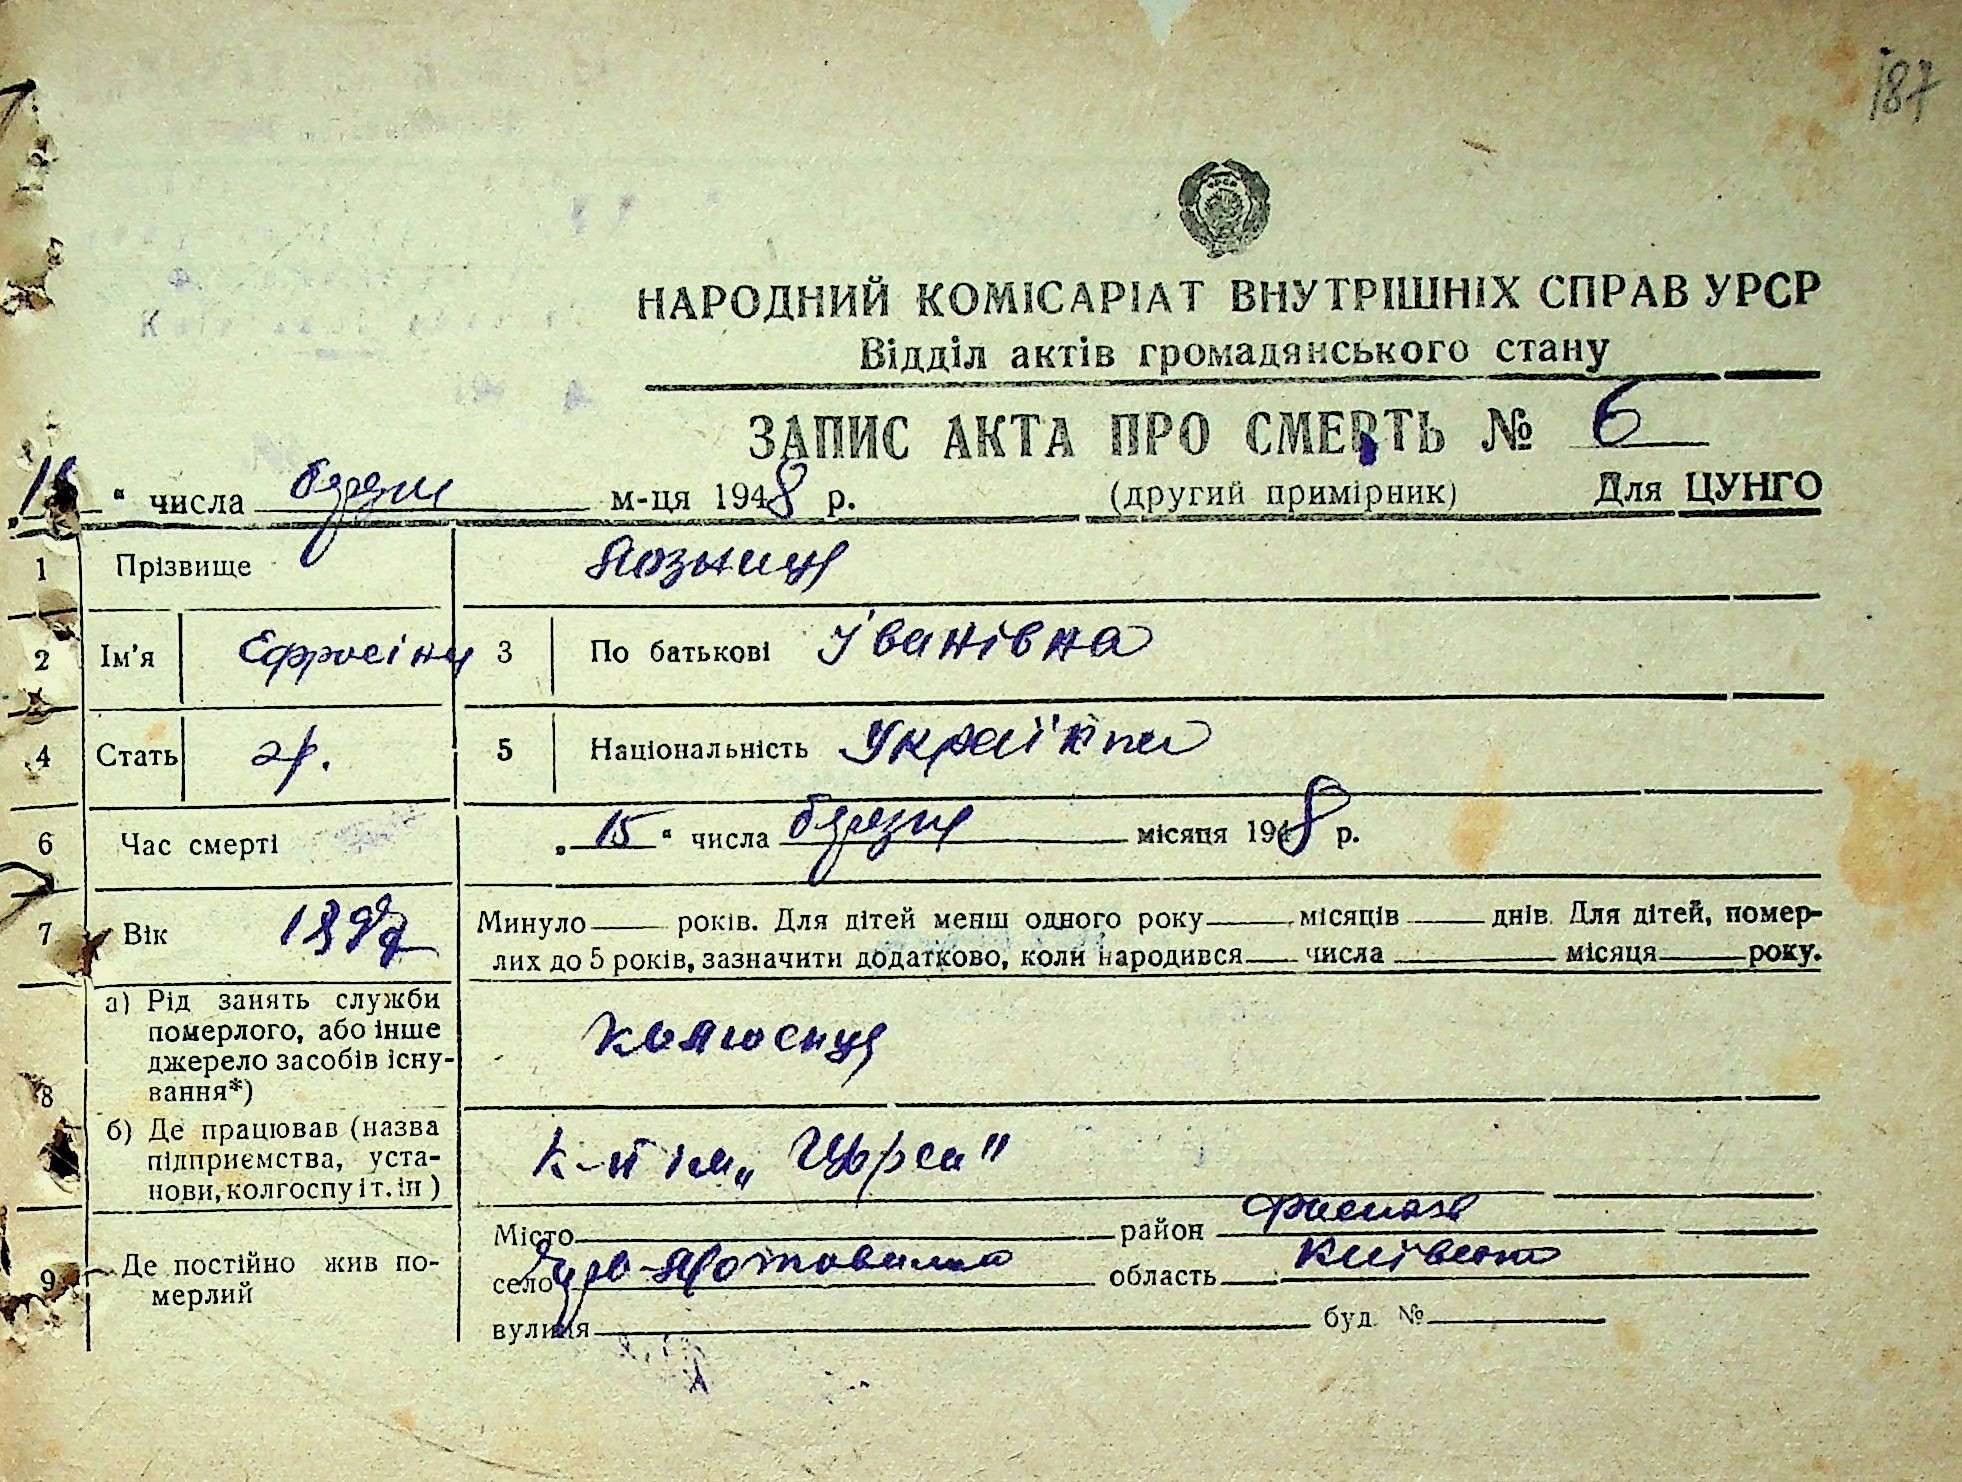 187
НАРОДНИЙ КОМІСАРІАТ ВНУТРІШНІХ СПРАВ УРСР
Відділ актів громадянського стану
ЗАПИС АКТА ПРО СМЕРТЬ № 6
„ “ числа березня м-ця 1948 р. (другий примірник) Для ЦУНГО
1 Прізвище
2 Ім'я Єфросіня 3 По батькові Іванівна
4 Стать ж. 5 Національність Українка
6 Час смерті „15“ числа березня місяця 1948 р.
7 Вік 1897 Минуло років. Для дітей менш одного року місяців днів. Для дітей, помер-
лих до 5 років, зазначити додатково, коли народився числа місяця року.
8 а) Рід занять служби
померлого, або інше
джерело засобів існу-
вання*)
б) Де працював (назва
підприємства, уста-
нови, колгоспу і т. ін)
9 Де постійно жив по-
мерлий
Місто район
село область Київська
вулиця буд. №